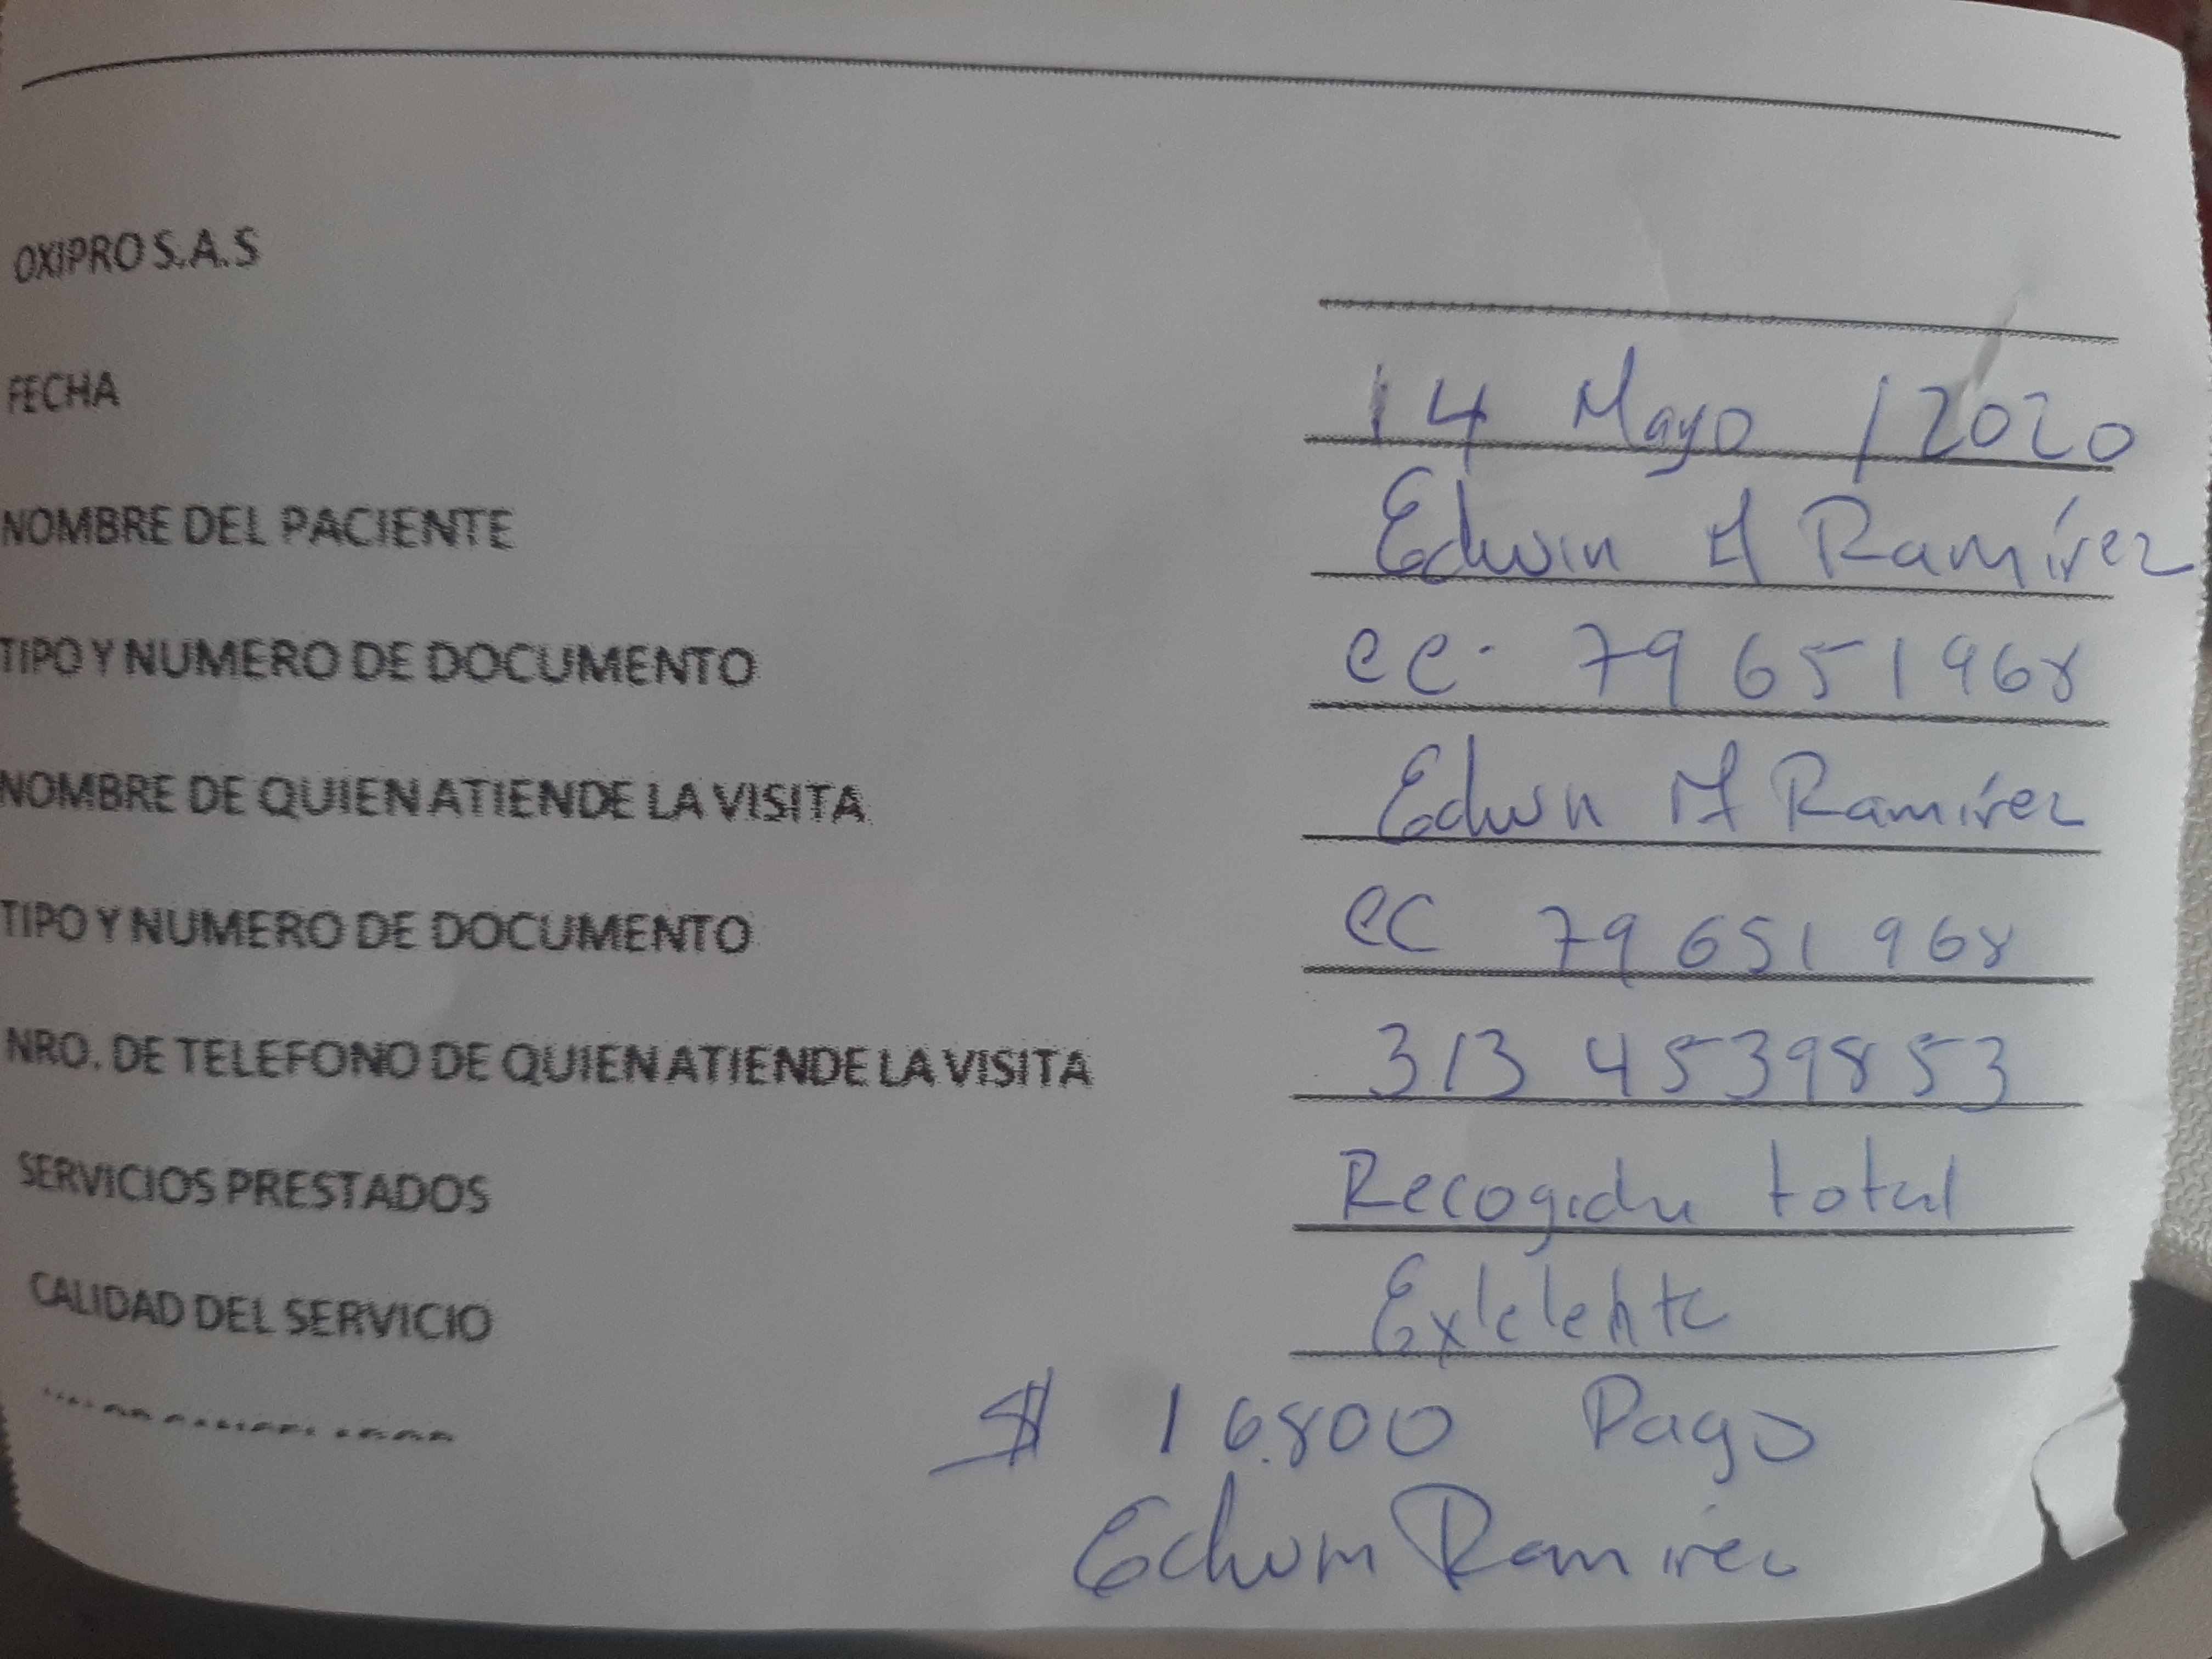 OXIPRO S.A.S
FECHA 14 Mayo / 2020
NOMBRE DEL PACIENTE Edwin A Ramírez
TIPO Y NUMERO DE DOCUMENTO CC. 79651968
NOMBRE DE QUIEN ATIENDE LA VISITA Edwin A Ramírez
TIPO Y NUMERO DE DOCUMENTO CC 79651968
NRO. DE TELEFONO DE QUIEN ATIENDE LA VISITA 313 4539853
SERVICIOS PRESTADOS Recogida total
CALIDAD DEL SERVICIO Exlelente
$ 16.800 Pago
Edwin Ramirez